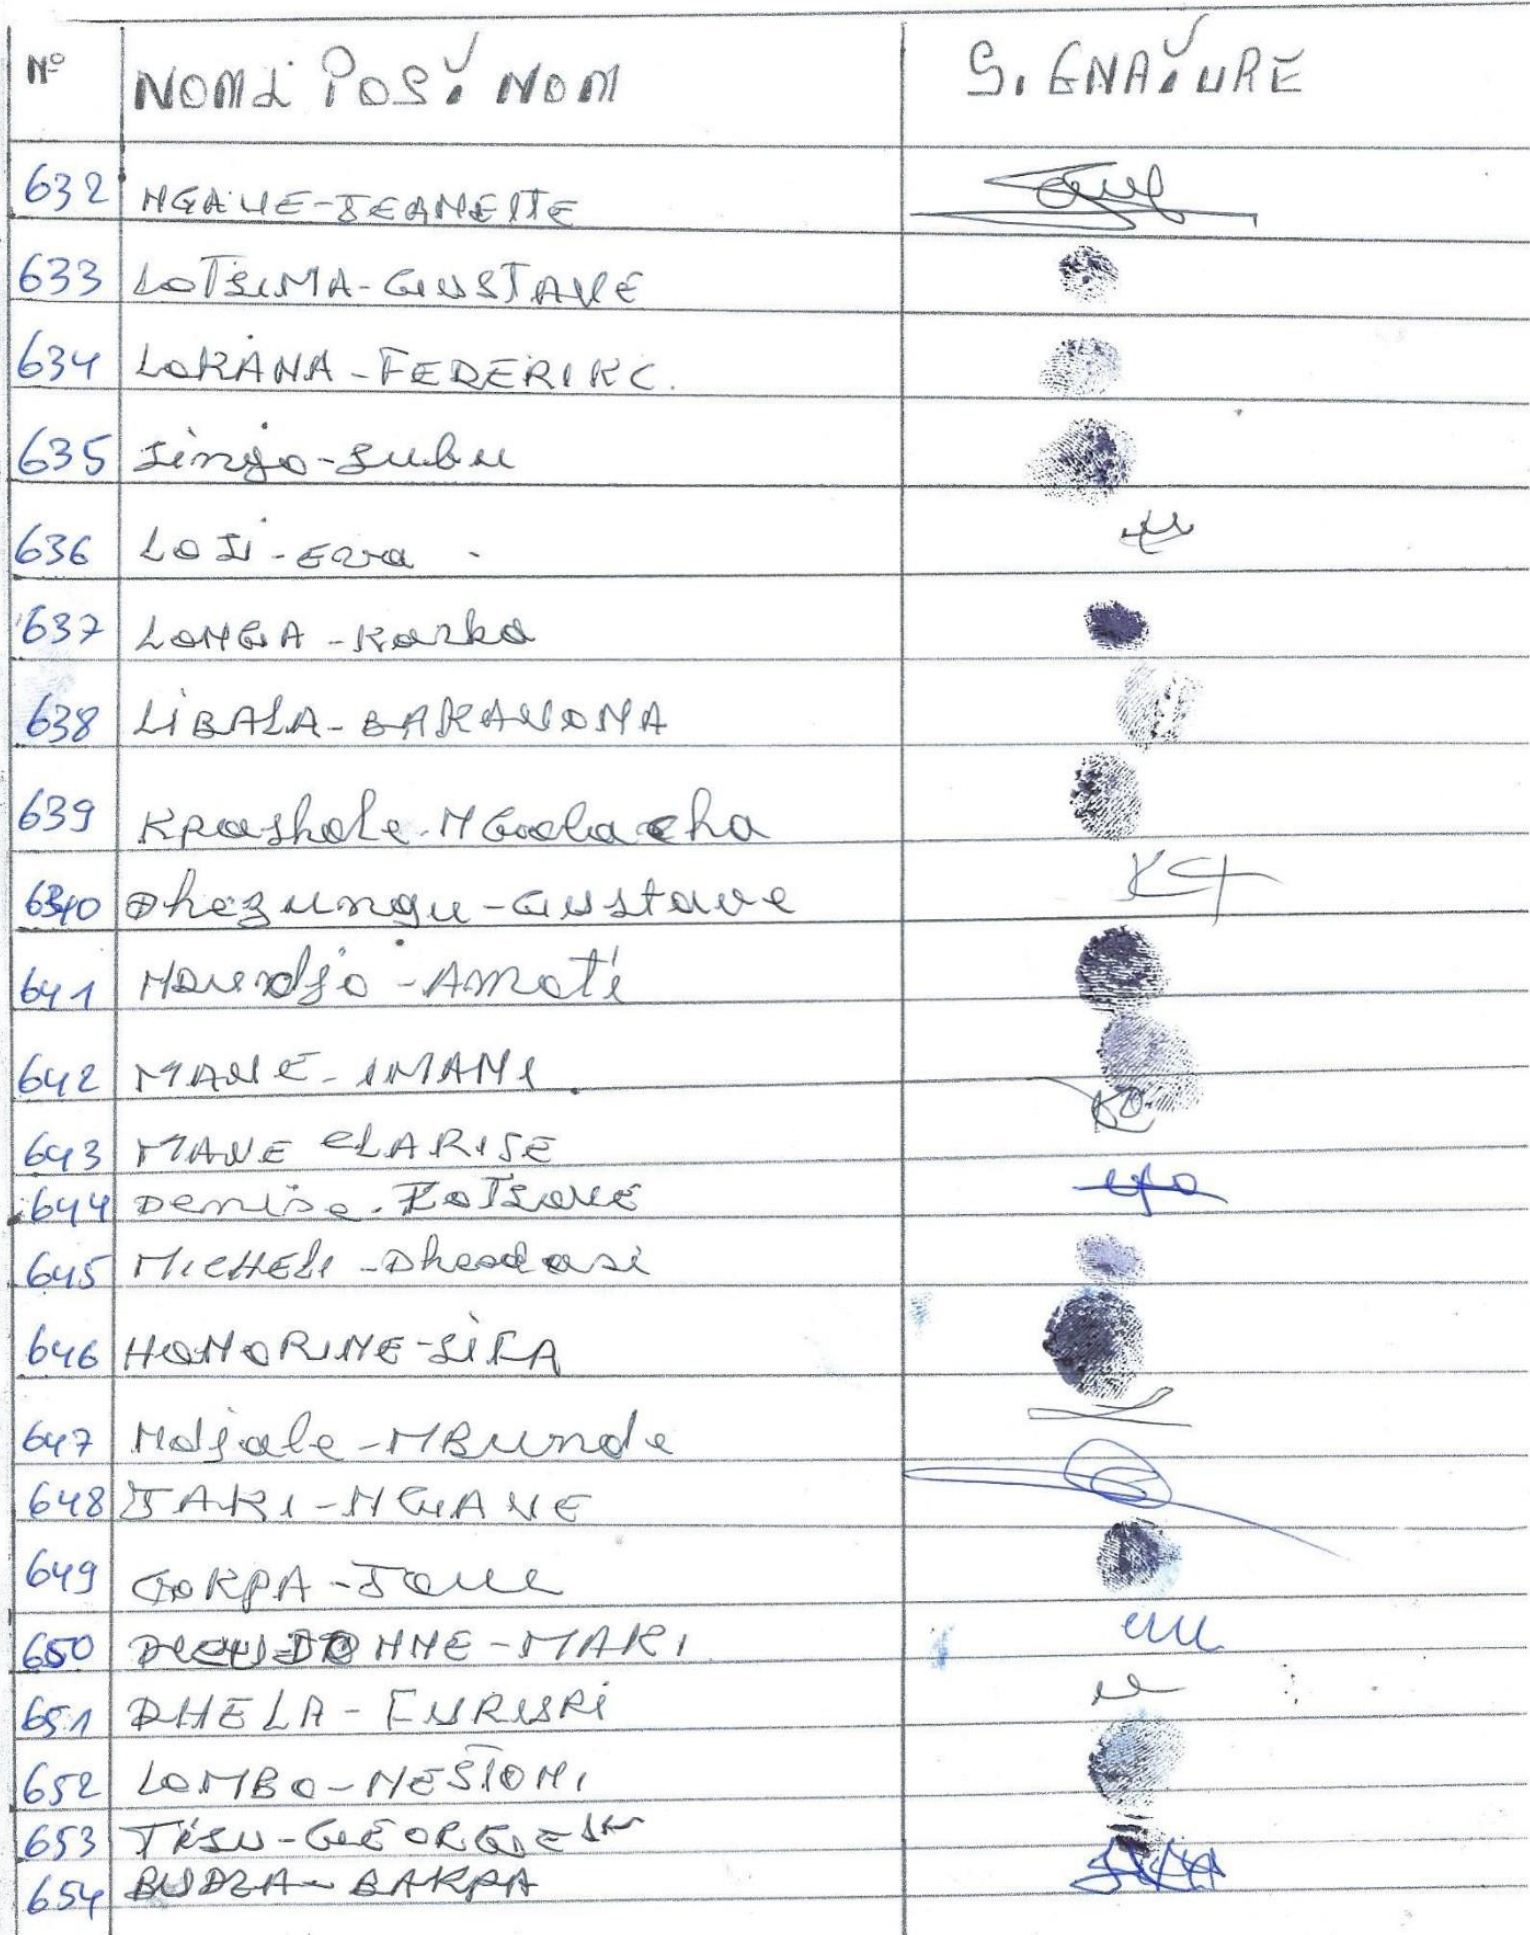 N° NOM & POST. NOM SIGNATURE
632 NGAVE-JEANETTE
633 LOTSIMA-GUSTAVE
634 LOKANA-FEDERIKC.
635 Singo-Subu
636 LOSI-Ezra
637 LONGA-Korko
638 LIBALA-BAKANOMA
639 Kpashole-NGolacha
640 Dhezungu-Gustave KCT
641 Amoti
642 MAVE-IMANI.
643 MAVE CLARISE
644 Denise
645 MICHELI-Dheodasi
646 HONORINE-SIFA
647 Ndjale-MBunde
648 JAKI-NGAVE
649 GOKPA-Jove
650 DIEUDONNE-MAKI
651 DHELA-FURURI
652 LOMBO-NESTONI
653 TISU-GEORGE
654 BUDZA-BAKPA